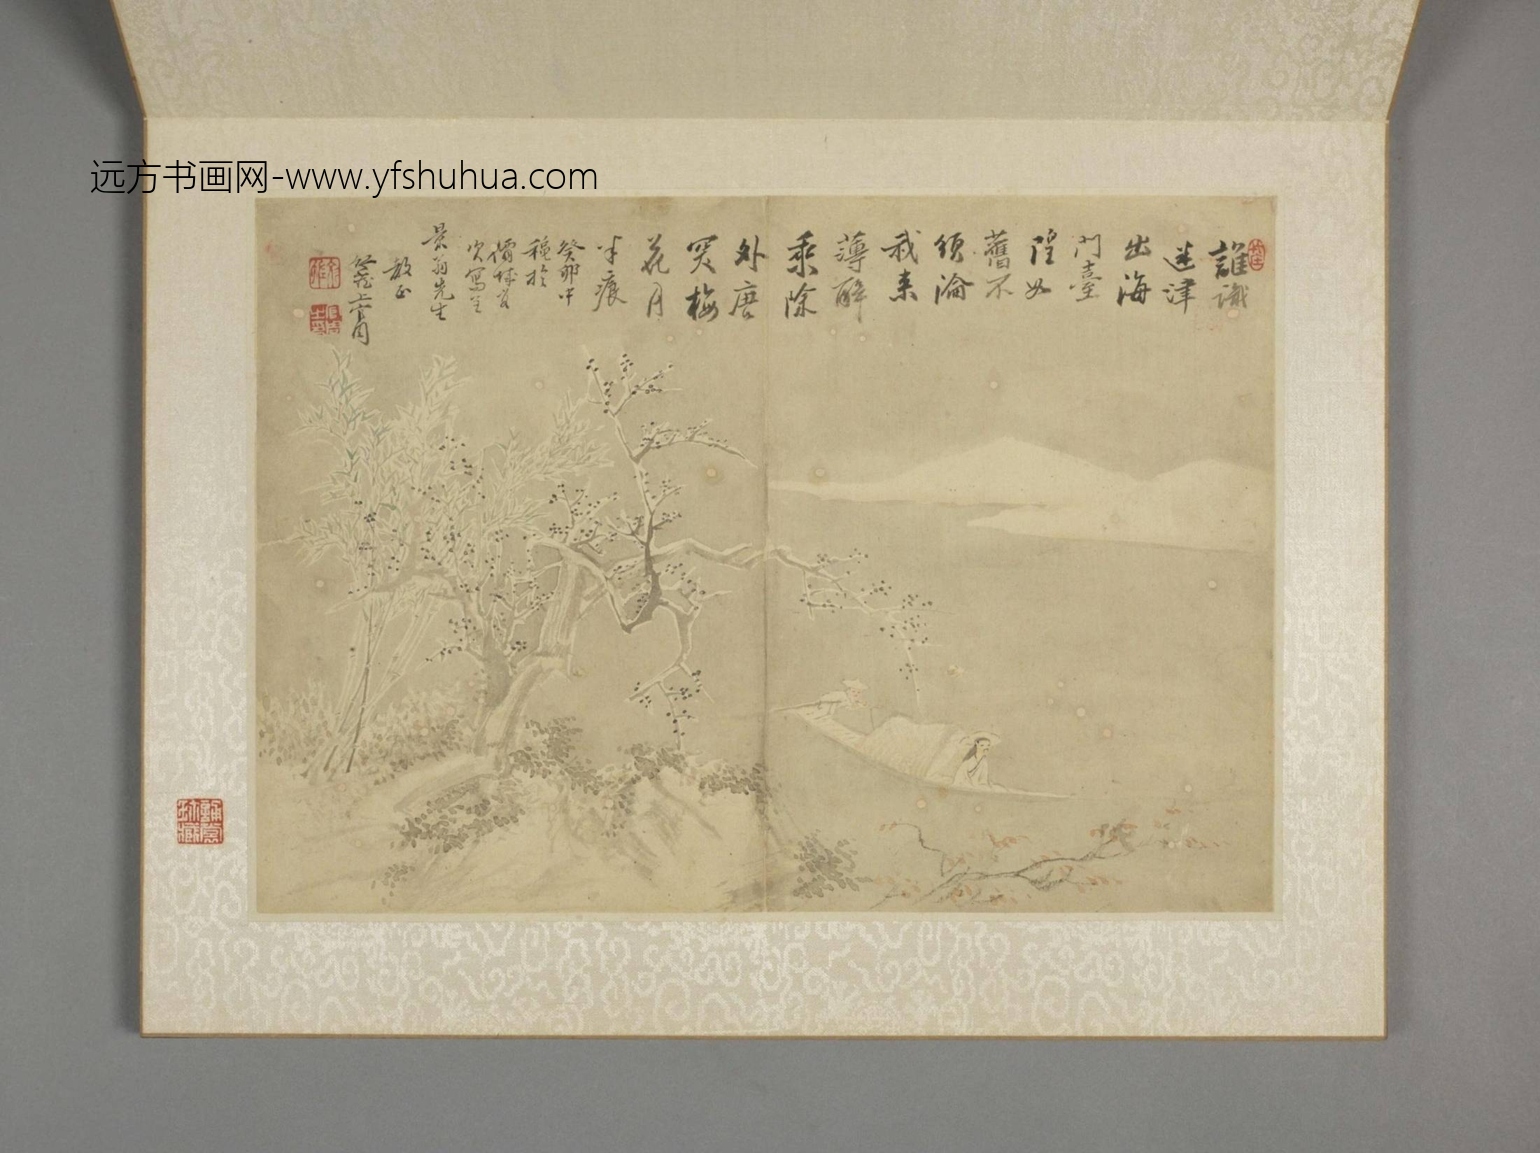 远方书画网-www.yfshuhua.com
誰識
迷津
出海
門臺
隍如
舊不
須論
我来
薄醉
乘除
外唐
突梅
花月
半痕
癸卯中
穐於
次寫呈
景翁先生
教正